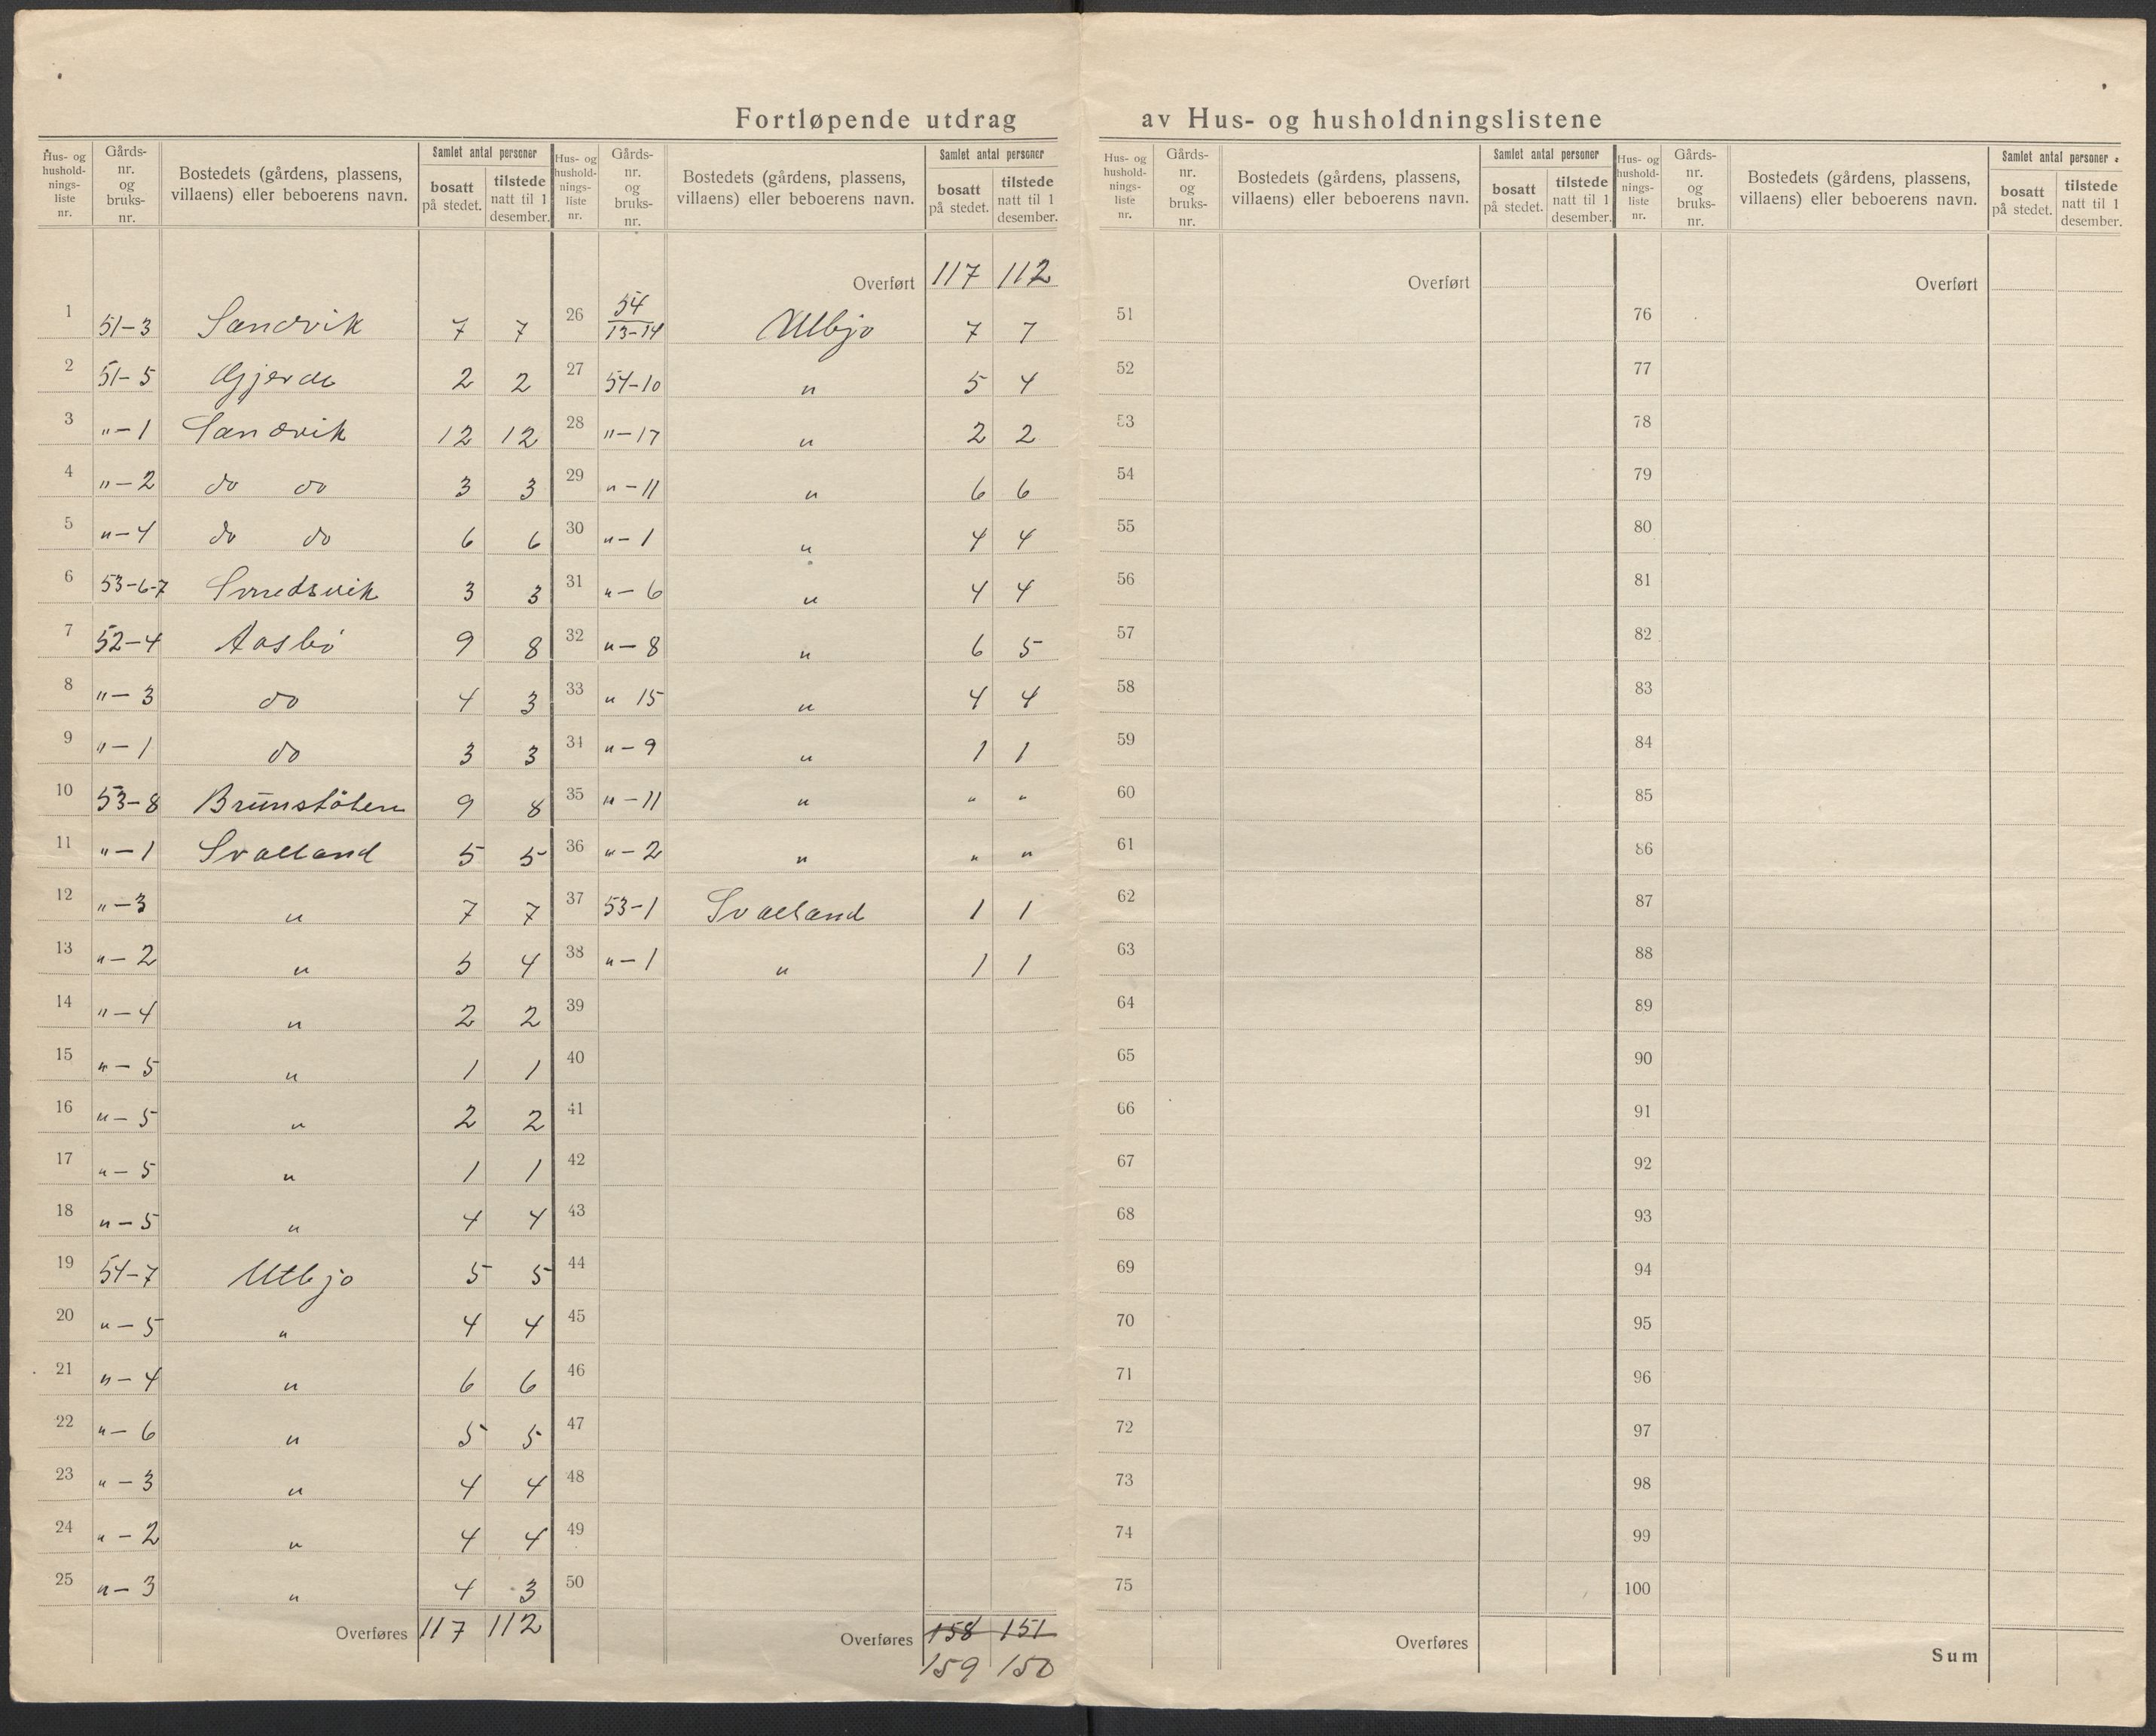 Fortløpende utdrag av Hus- og husholdningslistene
Hus- og hushold-nings-liste nr. Gårds-nr. og bruks-nr. Bostedets (gårdens, plassens, villaens) eller beboerens navn. Samlet antal personer bosatt på stedet. tilstede natt til 1 desember.
1 51-3 Sandvik 7 7
2 51-5 Gjerde 2 2
3 "-1 Sandvik 12 12
4 "-2 do do 3 3
5 "-4 do do 6 6
6 53-6-7 Smedsvik 3 3
7 52-4 Aasbö 9 8
8 "-3 do 4 3
9 "-1 do 3 3
10 53-8 Brunstölen 9 8
11 "-1 Svalland 5 5
12 "-3 " 7 7
13 "-2 " 5 4
14 "-4 " 2 2
15 "-5 " 1 1
16 "-5 " 2 2
17 "-5 " 1 1
18 "-5 " 4 4
19 54-7 Utbjo 5 5
20 "-5 " 4 4
21 "-4 " 6 6
22 "-6 " 5 5
23 "-3 " 4 4
24 "-2 " 4 4
25 "-3 " 4 3
Overføres 117 112
Hus- og hushold-nings-liste nr. Gårds-nr. og bruks-nr. Bostedets (gårdens, plassens, villaens) eller beboerens navn. Samlet antal personer bosatt på stedet. tilstede natt til 1 desember.
Overført 117 112
26 54 13-14 Utbjo 7 7
27 54-10 " 5 4
28 "-17 " 2 2
29 "-11 " 6 6
30 "-1 " 4 4
31 "-6 " 4 4
32 "-8 " 6 5
33 " 15 " 4 4
34 "-9 " 1 1
35 "-11 " " "
36 "-2 " " "
37 53-1 Svalland 1 1
38 "-1 " 1 1
39
40
41
42
43
44
45
46
47
48
49
50
Overføres 158 151
159 150
Hus- og hushold-nings-liste nr. Gårds-nr. og bruks-nr. Bostedets (gårdens, plassens, villaens) eller beboerens navn. Samlet antal personer bosatt på stedet. tilstede natt til 1 desember.
Overført
51
52
53
54
55
56
57
58
59
60
61
62
63
64
65
66
67
68
69
70
71
72
73
74
75
Overføres
Hus- og hushold-nings-liste nr. Gårds-nr. og bruks-nr. Bostedets (gårdens, plassens, villaens) eller beboerens navn. Samlet antal personer bosatt på stedet. tilstede natt til 1 desember.
Overført
76
77
78
79
80
81
82
83
84
85
86
87
88
89
90
91
92
93
94
95
96
97
98
99
100
Sum